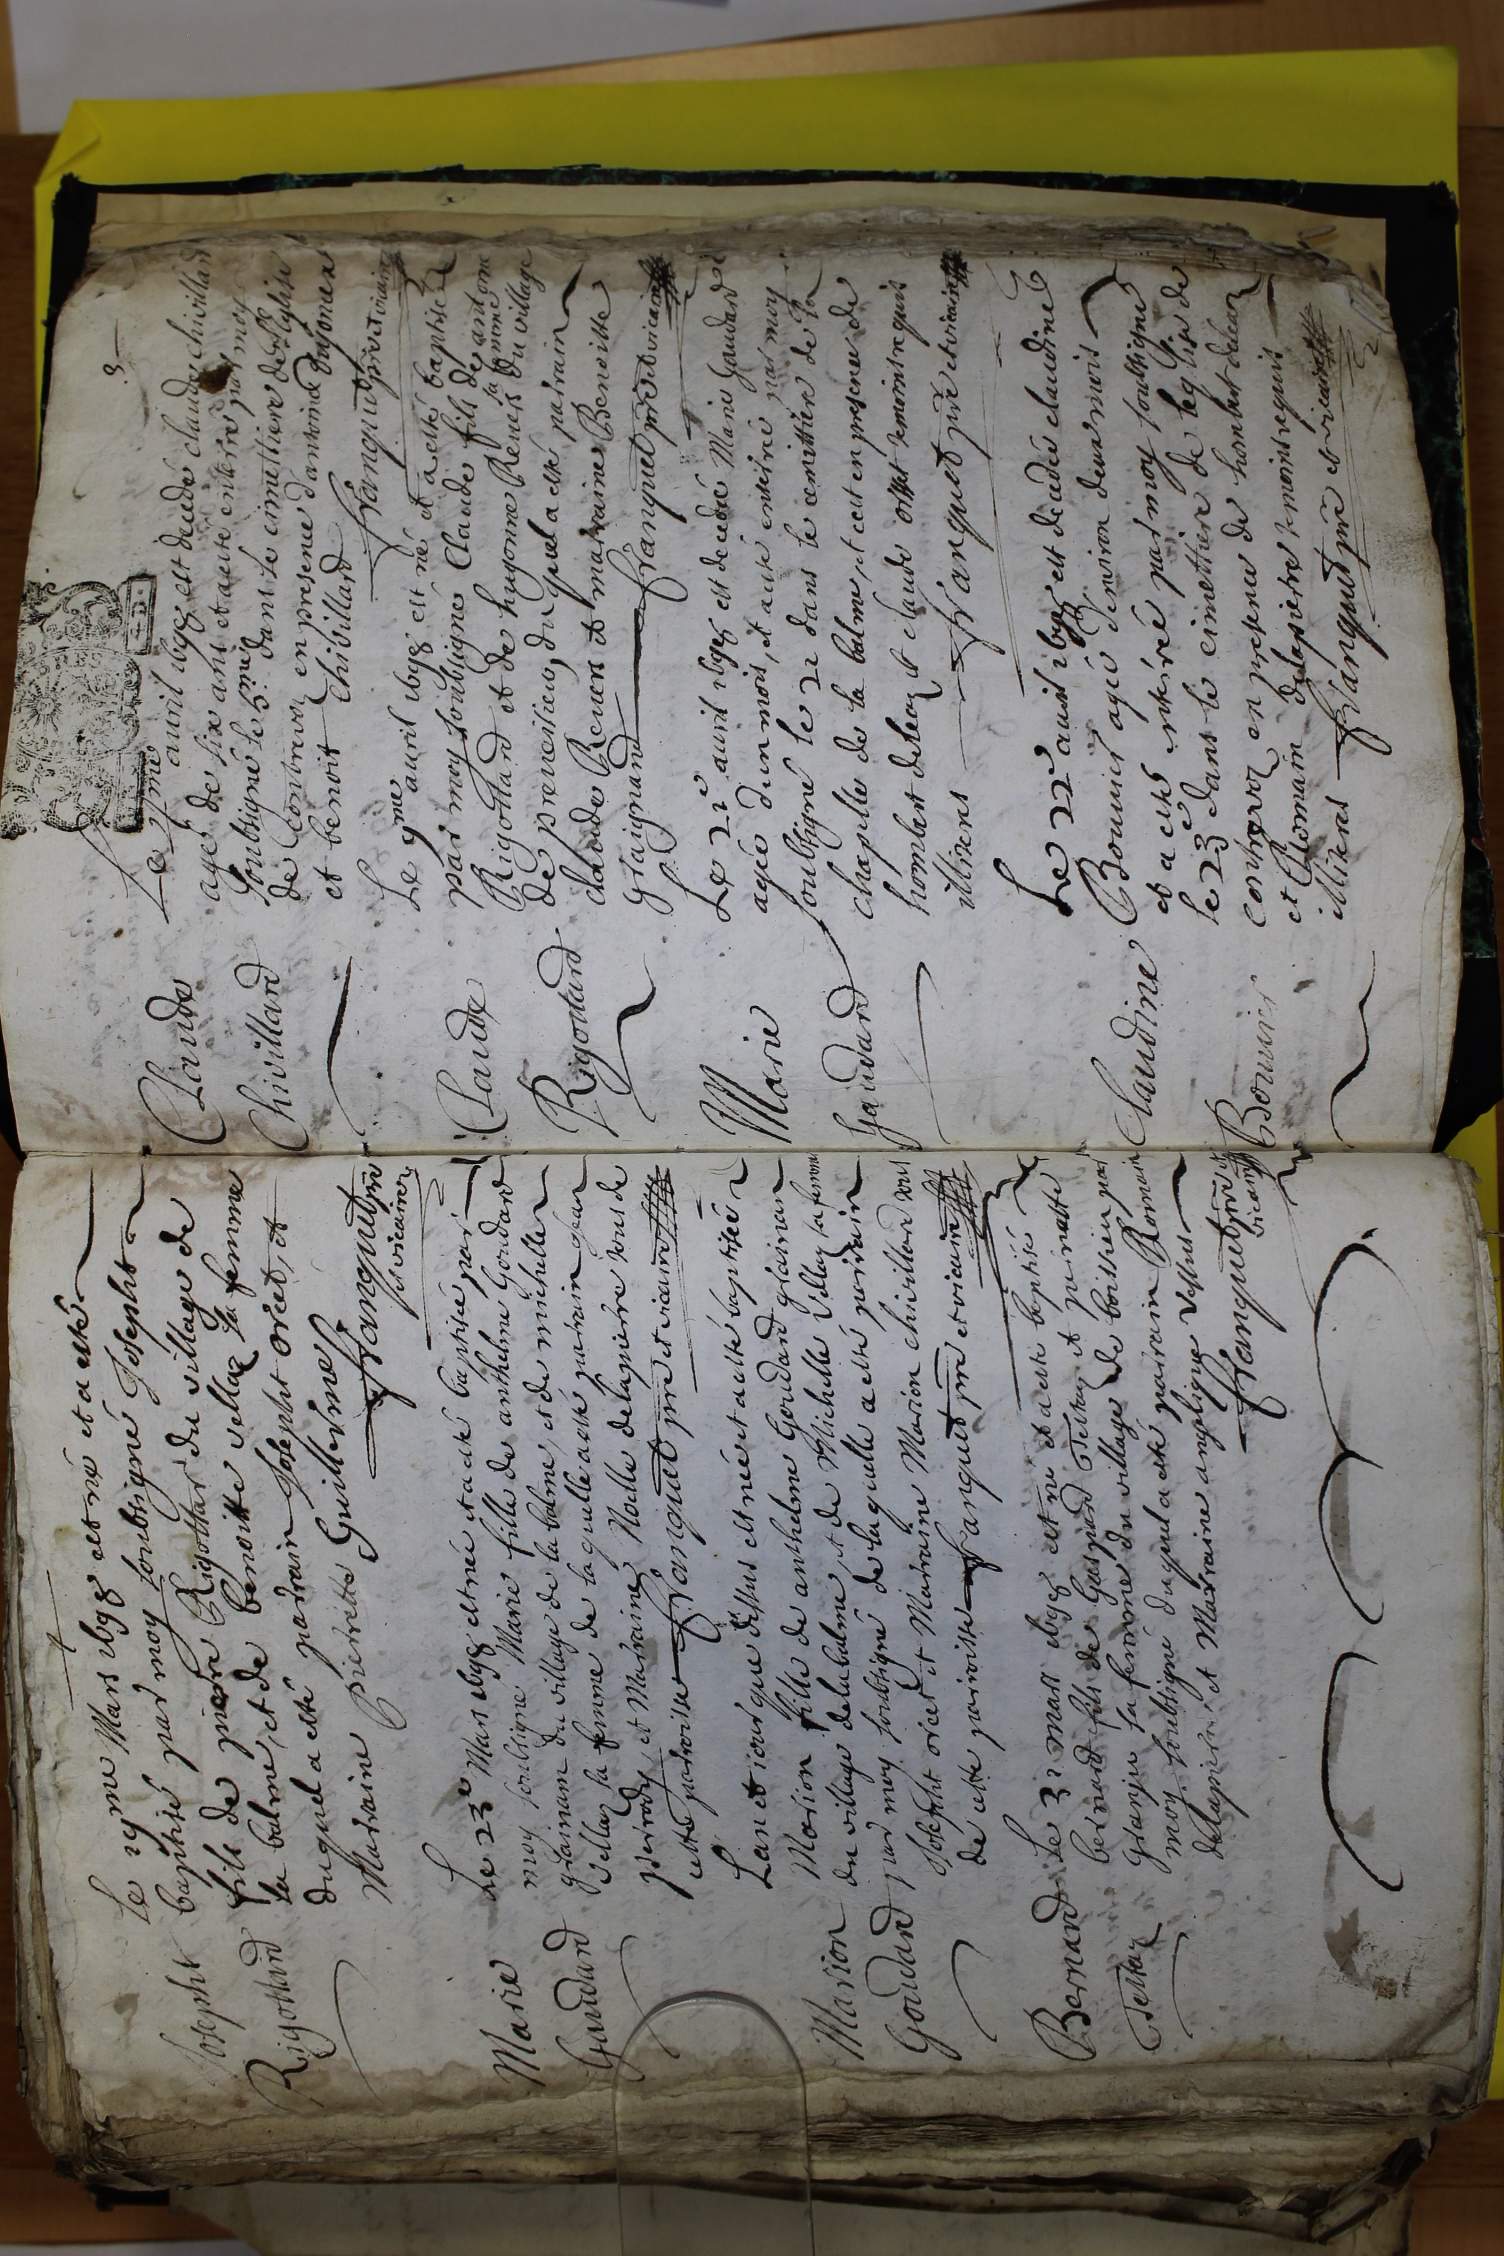 Joseph
Rigottard
Le 19me Mars 1698 est né et a esté
baptisé par moy soubsigné Joseph
fils de pierre Rigottar du village de
la balme, et de benoitte vellaz sa femme
duquel a esté parrain Joseph orcet, et
Marraine Pierrette Guillelme
Franquet pre
et vicaire
Marie
Goudard
Le 23e Mars 1698 est née et a esté baptisée par
moy soubsigné Marie fille de anthelme Goudard
grainam du village de la balme, et de michelle
vellaz sa femme de laquelle a esté parrain
et Marraine delapierre tous de
cette paroisse Franquet pre et vicaire
Marion
Goudard
Lan et iour que dessus est née et a esté baptisée
Marion fille de anthelme Goudard grainan
du village de la balme et de Michelle Vellaz sa femme
par moy soubsigné de laquelle a esté parrain
Joseph orcet et Marraine Marion chivillard tous
de cette paroisse Franquet pre et vicaire
Bernard
Testaz
Le 31 mars 1698 est né et a esté baptisé
bernard fils de Gaspard Testaz et pernette
granju sa femme du village de boissieu par
moy soubsigné duquel a esté parrain Romain
delapierre, et Marraine angelique
Franquet pre et
vicaire
3
Claude
Chivillard
Le 4me auril 1698 est decedé claude chivillard
agé de six ans et a esté enterré par moy
soubsigné le 5me dans le cimettiere de leglise
de Contrevoz en presence dantoine
et benoit Chivillard Franquet pre et vicaire
Claude
Rigottard
Le 9me auril 1698 est né et a esté baptisé
par moy soubsigné Claude fils de antoine
Rigottard et de hugonne Reueis sa femme
de premeilieu, duquel a esté parrain du village
claude Reueis et marraine Benoitte
graignand Franquet pre et vicaire
Marie
Gaudard
Le 21e auril 1698 est decedée Marie Gaudard
agée dun mois, et a esté enterrée par moy
soubsigné le 22 dans le cemittiere de la
chapelle de la balme, et cest en presence de
hombert deleaz et claude orset temoins requis
illiteres Franquet pre et vicaire
Claudine
Bouuier
Le 22e auril 1698 est decedée claudine
Bouuier agée denviron deux mois
et a esté enterrée par moy soubsigné
le 23e dans le cimettiere de leglise de
contrevoz en presence de hombert deleaz
et Romain delapierre temoins requis
illiteres Franquet pre et vicaire